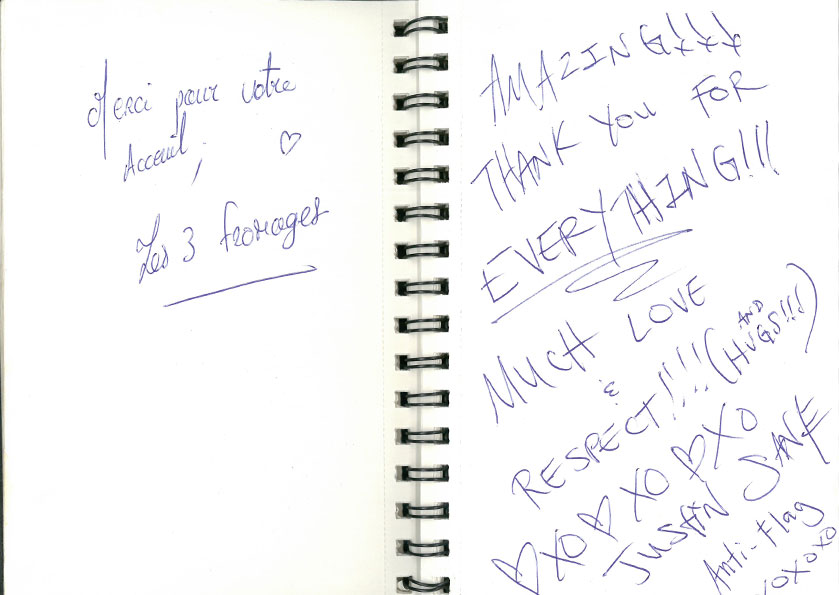 Merci pour votre
Acceuil,
♡
Les 3 fromages
AMAZING!!!
THANK YOU FOR
EVERYTHING!!!
MUCH LOVE
&
RESPECT!!!! (AND HUGS!!!)
♡XO♡XO♡XO
JUSTIN SANE
Anti-Flag
XOXOXO